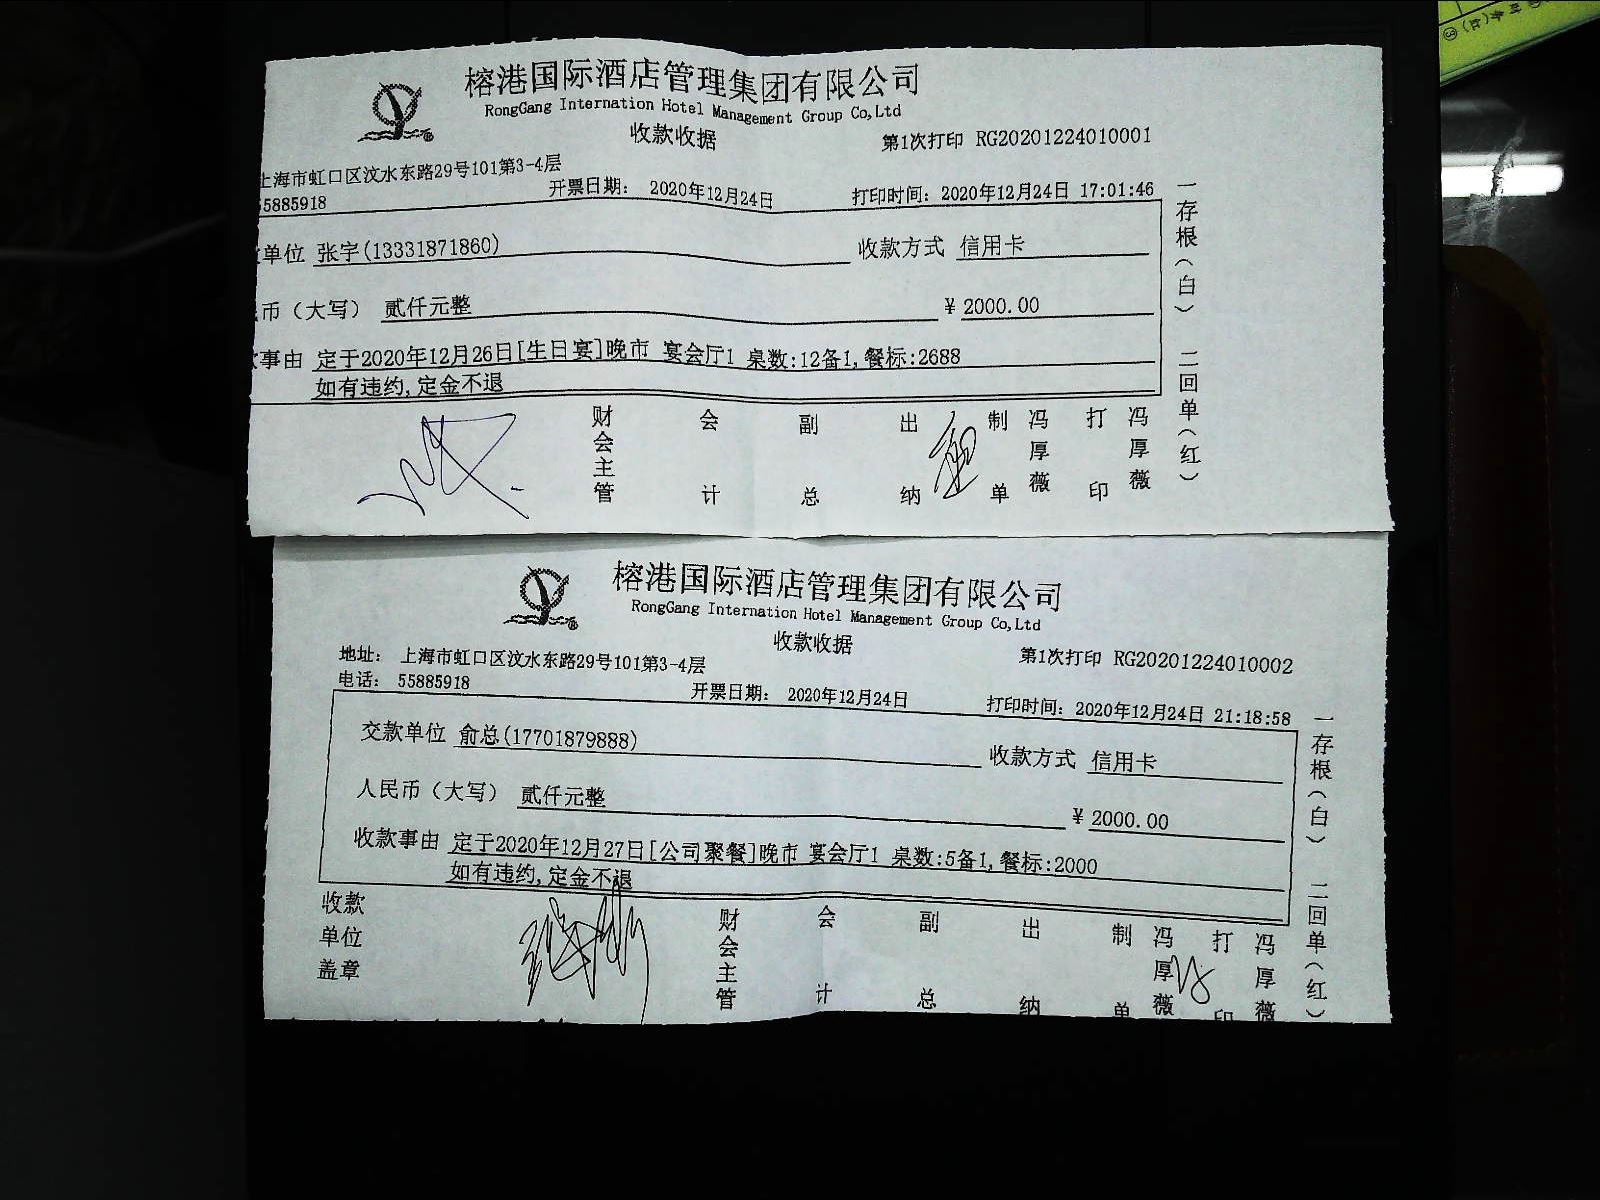 榕港国际酒店管理集团有限公司
RongGang Internation Hotel Management Group Co,Ltd
收款收据
第1次打印 RG20201224010001
上海市虹口区汶水东路29号101第3-4层
5885918
开票日期： 2020年12月24日
打印时间: 2020年12月24日 17:01:46
单位 张宇(13331871860)
收款方式 信用卡
币（大写） 贰仟元整
¥ 2000.00
事由 定于2020年12月26日[生日宴]晚市 宴会厅1 桌数:12备1,餐标:2688
如有违约,定金不退
财会主管 会计 副总 出纳 制单 冯厚薇 打印 冯厚薇
一存根(白) 二回单(红)
榕港国际酒店管理集团有限公司
RongGang Internation Hotel Management Group Co,Ltd
收款收据
第1次打印 RG20201224010002
地址： 上海市虹口区汶水东路29号101第3-4层
电话： 55885918
开票日期： 2020年12月24日
打印时间: 2020年12月24日 21:18:58
交款单位 俞总(17701879888)
收款方式 信用卡
人民币（大写） 贰仟元整
¥ 2000.00
收款事由 定于2020年12月27日[公司聚餐]晚市 宴会厅1 桌数:5备1,餐标:2000
如有违约,定金不退
收款单位盖章 财会主管 会计 副总 出纳 制单 冯厚薇 打印 冯厚薇
一存根(白) 二回单(红)